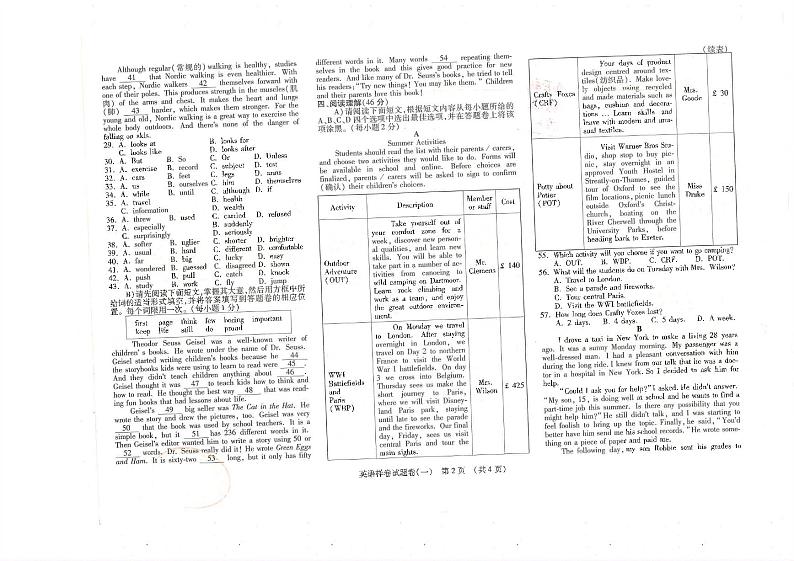 Although regular(常规的)walking is healthy, studies
have 41 that Nordic walking is even healthier. With
each step, Nordic walkers 42 themselves forward with
one of their poles. This produces strength in the muscles(肌
肉) of the arms and chest. It makes the heart and lungs
(肺) 43 harder, which makes them stronger. For the
young and old, Nordic walking is a great way to exercise the
whole body outdoors. And there's none of the danger of
falling on skis.
29. A. looks at B. looks for
C. looks like D. looks after
30. A. But B. So C. Or D. Unless
31. A. exercise B. record C. subject D. test
32. A. ears B. feet C. legs D. arms
33. A. us B. ourselves C. him D. themselves
34. A. while B. until C. although D. if
35. A. travel B. health
C. information D. wealth
36. A. threw B. used C. carried D. refused
37. A. especially B. suddenly
C. surprisingly D. seriously
38. A. softer B. uglier C. shorter D. brighter
39. A. usual B. hard C. different D. comfortable
40. A. far B. big C. lucky D. easy
41. A. wondered B. guessed C. disagreed D. shown
42. A. push B. pull C. catch D. knock
43. A. study B. work C. fly D. jump
B)请先阅读下面短文,掌握其大意,然后用方框中所
给词的适当形式填空,并将答案填写到答题卷的相应位
置。每个词限用一次。(每小题1分)
first page think few boring important
keep life still do proud
Theodor Seuss Geisel was a well-known writer of
children's books. He wrote under the name of Dr. Seuss.
Geisel started writing children's books because he 44
the storybooks kids were using to learn to read were 45 .
And they didn't teach children anything about 46 .
Geisel thought it was 47 to teach kids how to think and
how to read. He thought the best way 48 that was read-
ing fun books that had lessons about life.
Geisel's 49 big seller was The Cat in the Hat. He
wrote the story and drew the pictures, too. Geisel was very
50 that the book was used by school teachers. It is a
simple book, but it 51 has 236 different words in it.
Then Geisel's editor wanted him to write a story using 50 or
52 words. Dr. Seuss really did it! He wrote Green Eggs
and Ham. It is sixty-two 53 long, but it only has fifty
different words in it. Many words 54 repeating them-
selves in the book and this gives good practice for new
readers. And like many of Dr. Seuss's books, he tried to tell
his readers;"Try new things! You may like them." Children
and their parents love this book!
四、阅读理解(46分)
A)请阅读下面短文,根据短文内容从每小题所给的
A、B、C、D四个选项中选出最佳选项,并在答题卷上将该
项涂黑。(每小题2分)
A
Summer Activities
Students should read the list with their parents / carers,
and choose two activities they would like to do. Forms will
be available in school and online. Before choices are
finalized, parents / carers will be asked to sign to confirm
(确认) their children's choices.
Activity Description Member or staff Cost
Outdoor
Adventure
(OUT)
Take yourself out of
your comfort zone for a
week, discover new person-
al qualities, and learn new
skills. You will be able to
take part in a number of ac-
tivities from canoeing to
wild camping on Dartmoor.
Learn rock climbing and
work as a team, and enjoy
the great outdoor environ-
ment.
Mr.
Clemens
£ 140
WWI
Battlefields
and
Paris
(WBP)
On Monday we travel
to London. After staying
overnight in London, we
travel on Day 2 to northern
France to visit the World
War I battlefields. On day
3 we cross into Belgium.
Thursday sees us make the
short journey to Paris,
where we will visit Disney-
land Paris park, staying
until late to see the parade
and the fireworks. Our final
day, Friday, sees us visit
central Paris and tour the
main sights.
Mrs.
Wilson
£ 425
(续表)
Crafty Foxes
(CRF)
Your days of product
design centred around tex-
tiles(纺织品). Make love-
ly objects using recycled
and made materials such as
bags, cushion and decora-
tions ... Learn skills and
leave with modern and unu-
sual textiles.
Mrs.
Goode
£ 30
Potty about
Potter
(POT)
Visit Warner Bros Stu-
dio, shop stop to buy pic-
nic, stay overnight in an
approved Youth Hostel in
Streatly-on-Thames, guided
tour of Oxford to see the
film locations, picnic lunch
outside Oxford's Christ-
church, boating on the
River Cherwell through the
University Parks, before
heading back to Exeter.
Miss
Drake
£ 150
55. Which activity will you choose if you want to go camping?
A. OUT. B. WBP. C. CRF. D. POT.
56. What will the students do on Tuesday with Mrs. Wilson?
A. Travel to London.
B. See a parade and fireworks.
C. Tour central Paris.
D. Visit the WWI battlefields.
57. How long does Crafty Foxes last?
A. 2 days. B. 4 days. C. 5 days. D. A week.
B
I drove a taxi in New York to make a living 28 years
ago. It was a sunny Monday morning. My passenger was a
well-dressed man. I had a pleasant conversation with him
during the long ride. I knew from our talk that he was a doc-
tor in a hospital in New York. So I decided to ask him for
help.
"Could I ask you for help?"I asked. He didn't answer.
"My son, 15, is doing well at school and he wants to find a
part-time job this summer. Is there any possibility that you
might help him?"He still didn't talk, and I was starting to
feel foolish to bring up the topic. Finally, he said,"You'd
better have him send me his school records."He wrote some-
thing on a piece of paper and paid me.
The following day, my son Robbie sent his grades to
英语样卷试题卷(一) 第2页 (共4页)